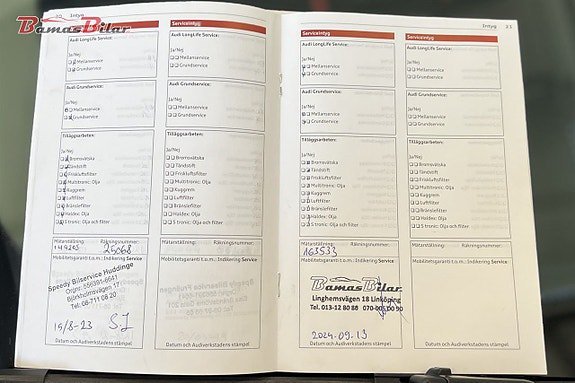 BamasBilar
20 Intyg
Audi LongLife Service:
Ja/Nej
Mellanservice
Grundservice
Audi Grundservice:
Ja/Nej
Mellanservice
Grundservice
Tilläggsarbeten:
Ja/Nej
Bromsvätska
Tändstift
Friskluftsfilter
Multitronic: Olja
Kuggrem
Luftfilter
Bränslefilter
Haldex: Olja
S tronic: Olja och filter
Mätarställning: Räkningsnummer:
149263 26068
Mobilitetsgaranti t.o.m.: Indikering Service
Speedy Bilservice Huddinge
Orgnr: 556391-6641
Björkholmsvägen 17
Tel: 08-711 08 20
15/8-23 SJ
Datum och Audiverkstadens stämpel
Serviceintyg
Audi LongLife Service:
Ja/Nej
Mellanservice
Grundservice
Audi Grundservice:
Ja/Nej
Mellanservice
Grundservice
Tilläggsarbeten:
Ja/Nej
Bromsvätska
Tändstift
Friskluftsfilter
Multitronic: Olja
Kuggrem
Luftfilter
Bränslefilter
Haldex: Olja
S tronic: Olja och filter
Mätarställning: Räkningsnummer:
Mobilitetsgaranti t.o.m.: Indikering Service
Datum och Audiverkstadens stämpel
Intyg 21
Serviceintyg
Audi LongLife Service:
Ja/Nej
Mellanservice
Grundservice
Audi Grundservice:
Ja/Nej
Mellanservice
Grundservice
Tilläggsarbeten:
Ja/Nej
Bromsvätska
Tändstift
Friskluftsfilter
Multitronic: Olja
Kuggrem
Luftfilter
Bränslefilter
Haldex: Olja
S tronic: Olja och filter
Mätarställning: Räkningsnummer:
163533
Mobilitetsgaranti t.o.m.: Indikering Service
BamasBilar
Linghemsvägen 18 Linköping
Tel. 013-12 80 88 070-005 00 90
2024-09-13
Datum och Audiverkstadens stämpel
Serviceintyg
Audi LongLife Service:
Ja/Nej
Mellanservice
Grundservice
Audi Grundservice:
Ja/Nej
Mellanservice
Grundservice
Tilläggsarbeten:
Ja/Nej
Bromsvätska
Tändstift
Friskluftsfilter
Multitronic: Olja
Kuggrem
Luftfilter
Bränslefilter
Haldex: Olja
S tronic: Olja och filter
Mätarställning: Räkningsnummer:
Mobilitetsgaranti t.o.m.: Indikering Service
Datum och Audiverkstadens stämpel